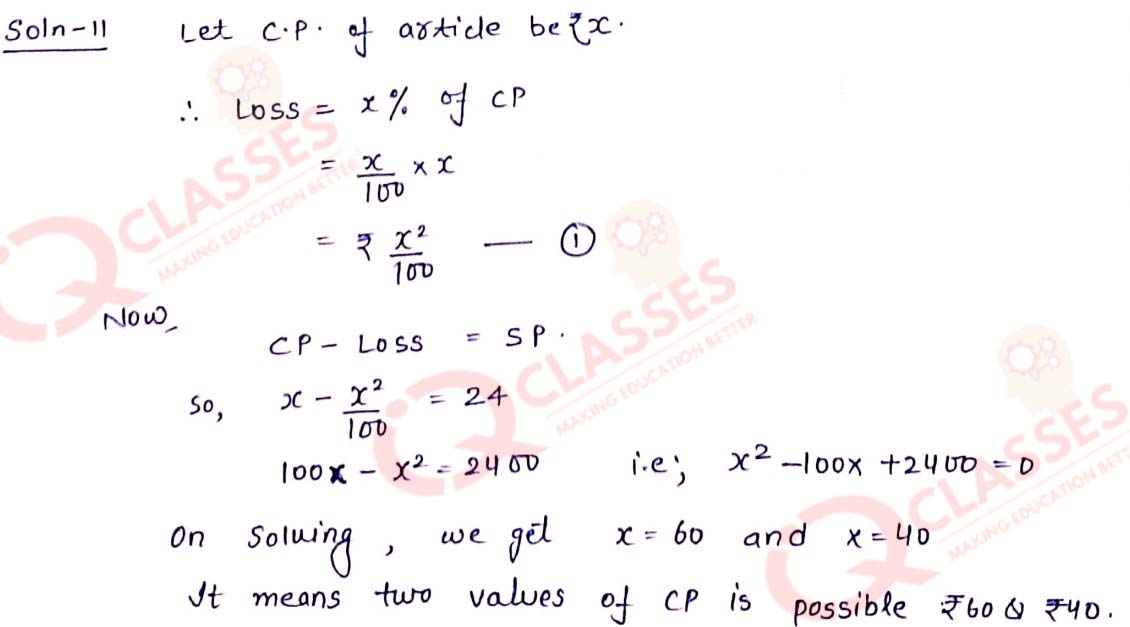 Soln-11 Let C.P. of article be ₹x.
∴ Loss = x% of CP
= x/100 × x
= ₹ x²/100 — ①
Now,
CP - Loss = SP.
So, x - x²/100 = 24
100x - x² = 2400 i.e; x² - 100x + 2400 = 0
On Solving, we get x = 60 and x = 40
It means two values of CP is possible ₹60 & ₹40.
CLASSES
MAKING EDUCATION BETTER
CLASSES
MAKING EDUCATION BETTER
CLASSES
MAKING EDUCATION BETT